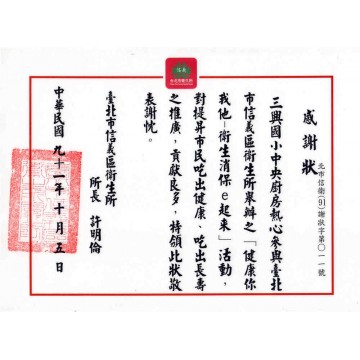 感謝狀
北市信衛(91)謝狀字第〇一一號
三興國小中央廚房熱心參與臺北
市信義區衛生所舉辦之「健康你
我他－衛生消保e起來」活動，
對提昇市民吃出健康、吃出長壽
之推廣，貢獻良多，特頒此狀敬
表謝忱。
臺北市信義區衛生所
所長 許明倫
中華民國九十一年十月五日